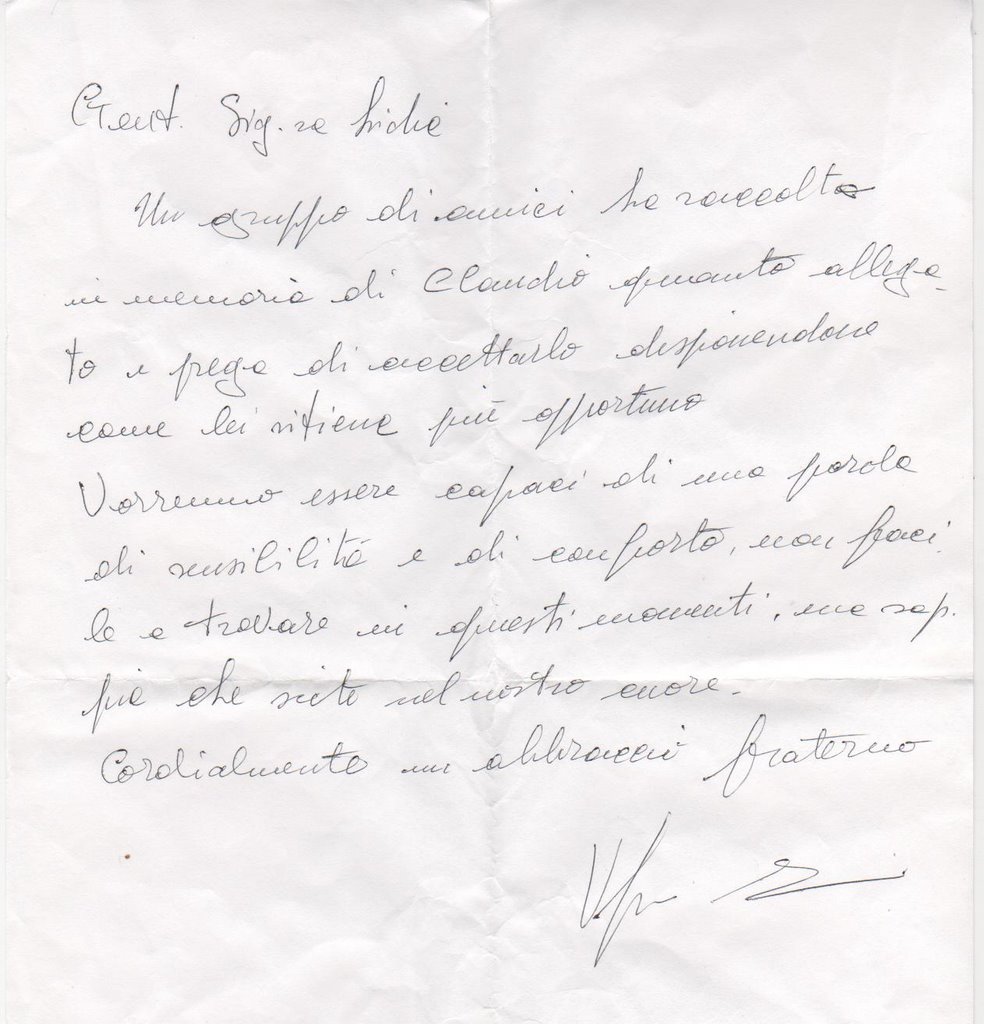 Gent. Sig.ra Lidia
Un gruppo di amici ha raccolto
in memoria di Claudio quanto allega-
to e prega di accettarlo disponendone
come lei ritiene più opportuno
Vorremmo essere capaci di una parola
di sensibilità e di conforto, non faci
le a trovare in questi momenti, ma sap-
pia che siete nel nostro cuore.
Cordialmente un abbraccio fraterno